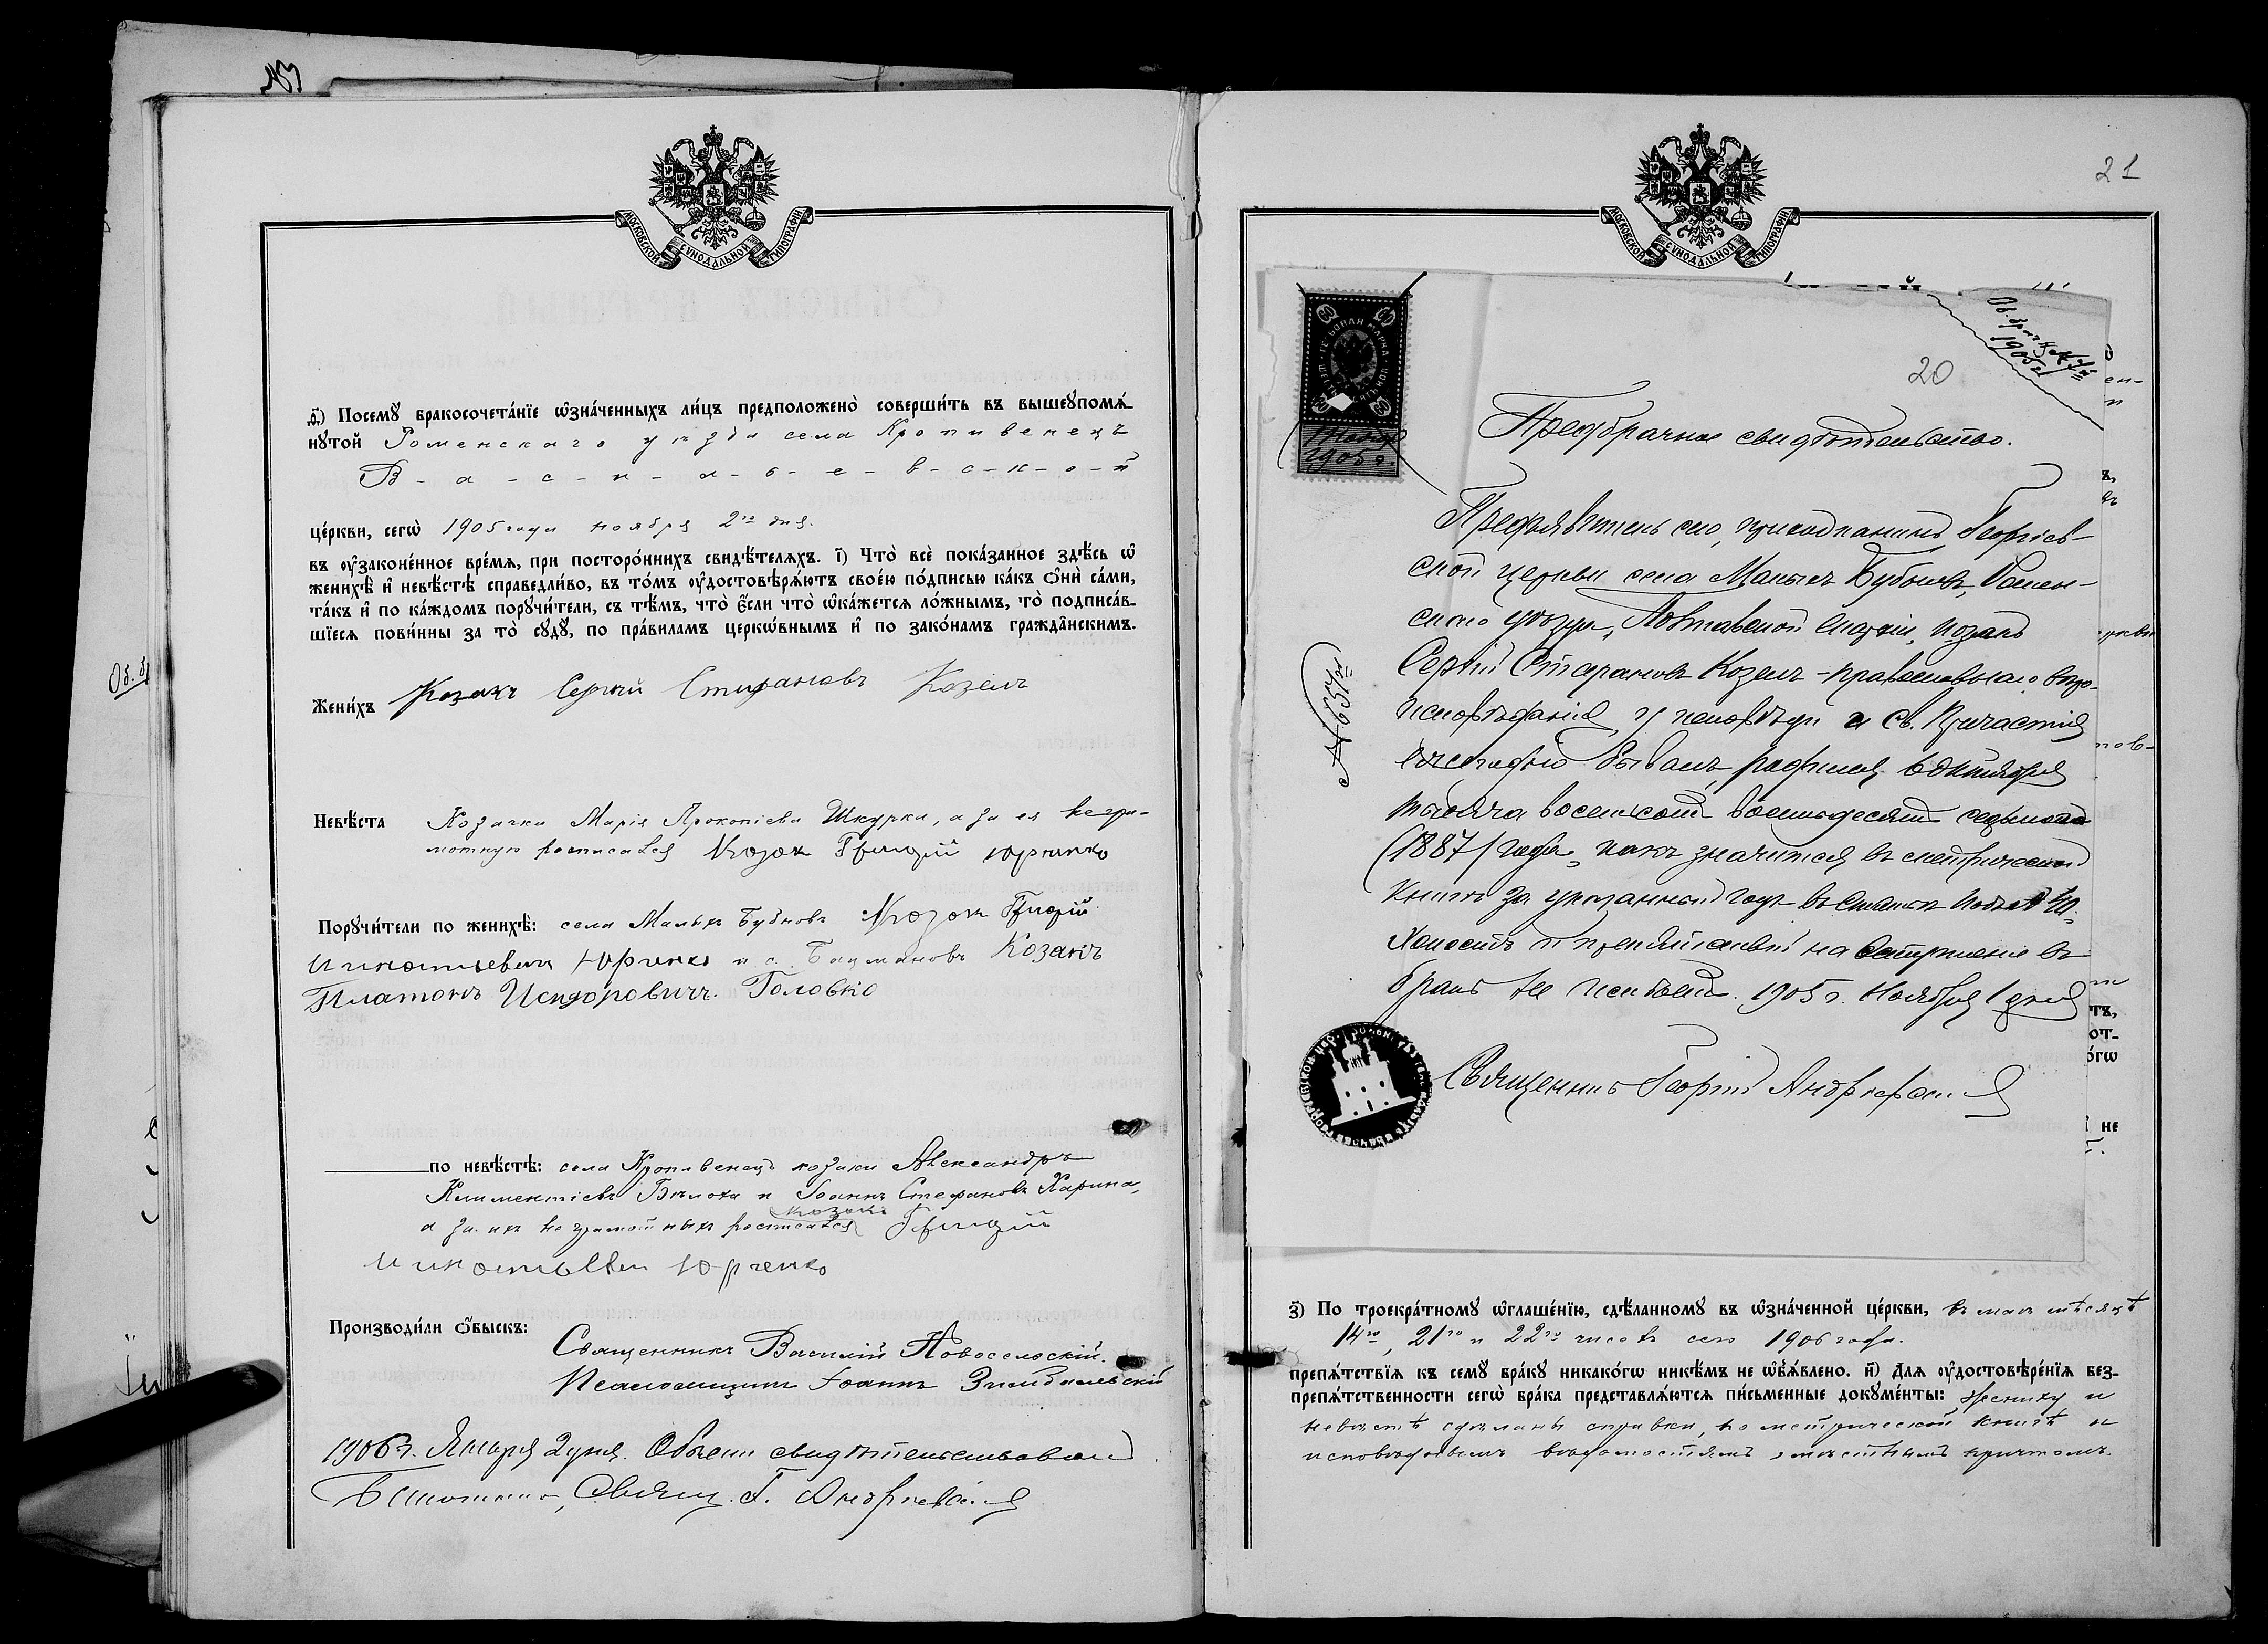 МОСКОВСКОЙ СѴНОДАЛЬНОЙ ТИПОГРАФІИ
ѳ҃) Посемꙋ̀ бракосочета́нїе ѡ҆зна́ченныхъ ли́цъ предположено̀ соверши́ть въ вышеꙋпомѧ́-
нꙋтой Роменскаго уѣзда села Кропивенецъ
В-а-с-и-л-ь-е-в-с-к-о-й
це́ркви, сегѡ̀ 1905 года ноября 2го дня.
въ ᲂу҆зако́ненное вре́мѧ, при посторо́ннихъ свидѣ́телѧхъ. і҃) Что̀ всѐ пока́занное здѣ́сь ѡ҆
женихѣ̀ и҆ невѣ́стѣ справедли́во, въ то́мъ ᲂу҆достовѣрѧ́ютъ свое́ю по́дписью ка́къ ѻ҆нѝ са́ми,
та́къ и҆ по ка́ждомъ порꙋчи́тели, съ тѣ́мъ, что̀ є҆́сли что̀ ѡ҆ка́жетсѧ ло́жнымъ, то̀ подписа́в-
шїесѧ пови́нны за то̀ сꙋдꙋ̀, по пра́виламъ церко́внымъ и҆ по зако́намъ гражда́нскимъ.
Жени́хъ Козакъ Сергій Стефановъ Козелъ
Невѣ́ста Козачка Марія Прокопіева Шкурка, а за ея негра-
мотную росписался Козак Григорій Юрченко
Порꙋчи́тели по женихѣ̀: села Малыхъ Бубновъ Козак Григорій
Игнатьевич Юрченко и с. Бацмановъ Козакъ
Платонъ Исидоровичъ Головко
по невѣ́стѣ: села Кропивенецъ козаки Александръ
Климентіевъ и Іоаннъ Стефановъ Карпина,
а за ихъ неграмотныхъ росписался козакъ Григорій
Игнатьевич Юрченко
Производи́ли ѻ҆́быскъ: Священникъ Василій Новосельскій.
Псаломщикъ Іоаннъ
1906 г. Января 2 дня. Обыски свидѣтельствовалъ
Свящ. Г. Андріевскій
МОСКОВСКОЙ СѴНОДАЛЬНОЙ ТИПОГРАФІИ
21
1905 г.
20
ГЕРБОВАЯ МАРКА
60
1 Ноября
1905 г.
Предбрачное свидѣтельство.
Предъявитель сего, прихожанинъ Георгіев-
ской церкви села Малыхъ Бубновъ, Ромен-
скаго уѣзда, Полтавской епархіи, козакъ
Сергій Стефановъ Козелъ - православнаго вѣро-
исповѣданія, у исповѣди и Св. Причастія
ежегодно бывалъ, родился 6 октября
тысяча восемьсотъ восемьдесятъ седьмого
(1887) года, какъ значится въ метрической
книгѣ за указанный годъ въ статьѣ подъ № 40.
Холостъ и препятствій на вступленіе въ
бракъ не имѣетъ. 1905 г. Ноября 1 дня
Священникъ Георгій Андріевскій
№ 65
з҃) По троекра́тномꙋ ѡ҆глаше́нїю, сдѣ́ланномꙋ въ ѡ҆зна́ченной це́ркви, въ маѣ мѣсяцѣ
14го, 21го и 22го числъ сего 1906 года.
препѧ́тствїѧ къ семꙋ̀ бра́кꙋ никако́гѡ никѣ́мъ не ѡ҆б̾ѧ́влено. и҃) Длѧ ᲂу҆достовѣре́нїѧ без-
препѧ́тственности сегѡ̀ бра́ка представлѧ́ютсѧ пи́сьменные докꙋме́нты: жениху и
невѣстѣ сдѣланы справки, по метрической книгѣ и
исповѣднымъ вѣдомостямъ, мѣстнымъ причтомъ.